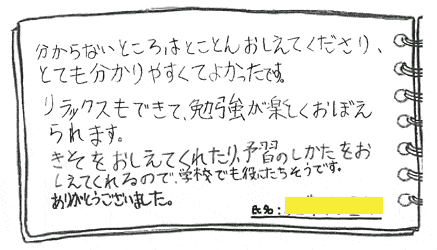 分からないところはとことんおしえてくださり、
とても分かりやすくてよかったです。
リラックスもできて、勉強が楽しくおぼえ
られます。
きそをおしえてくれたり、予習のしかたをお
しえてくれるので、学校でも役にたちそうです。
ありがとうございました。
氏名: